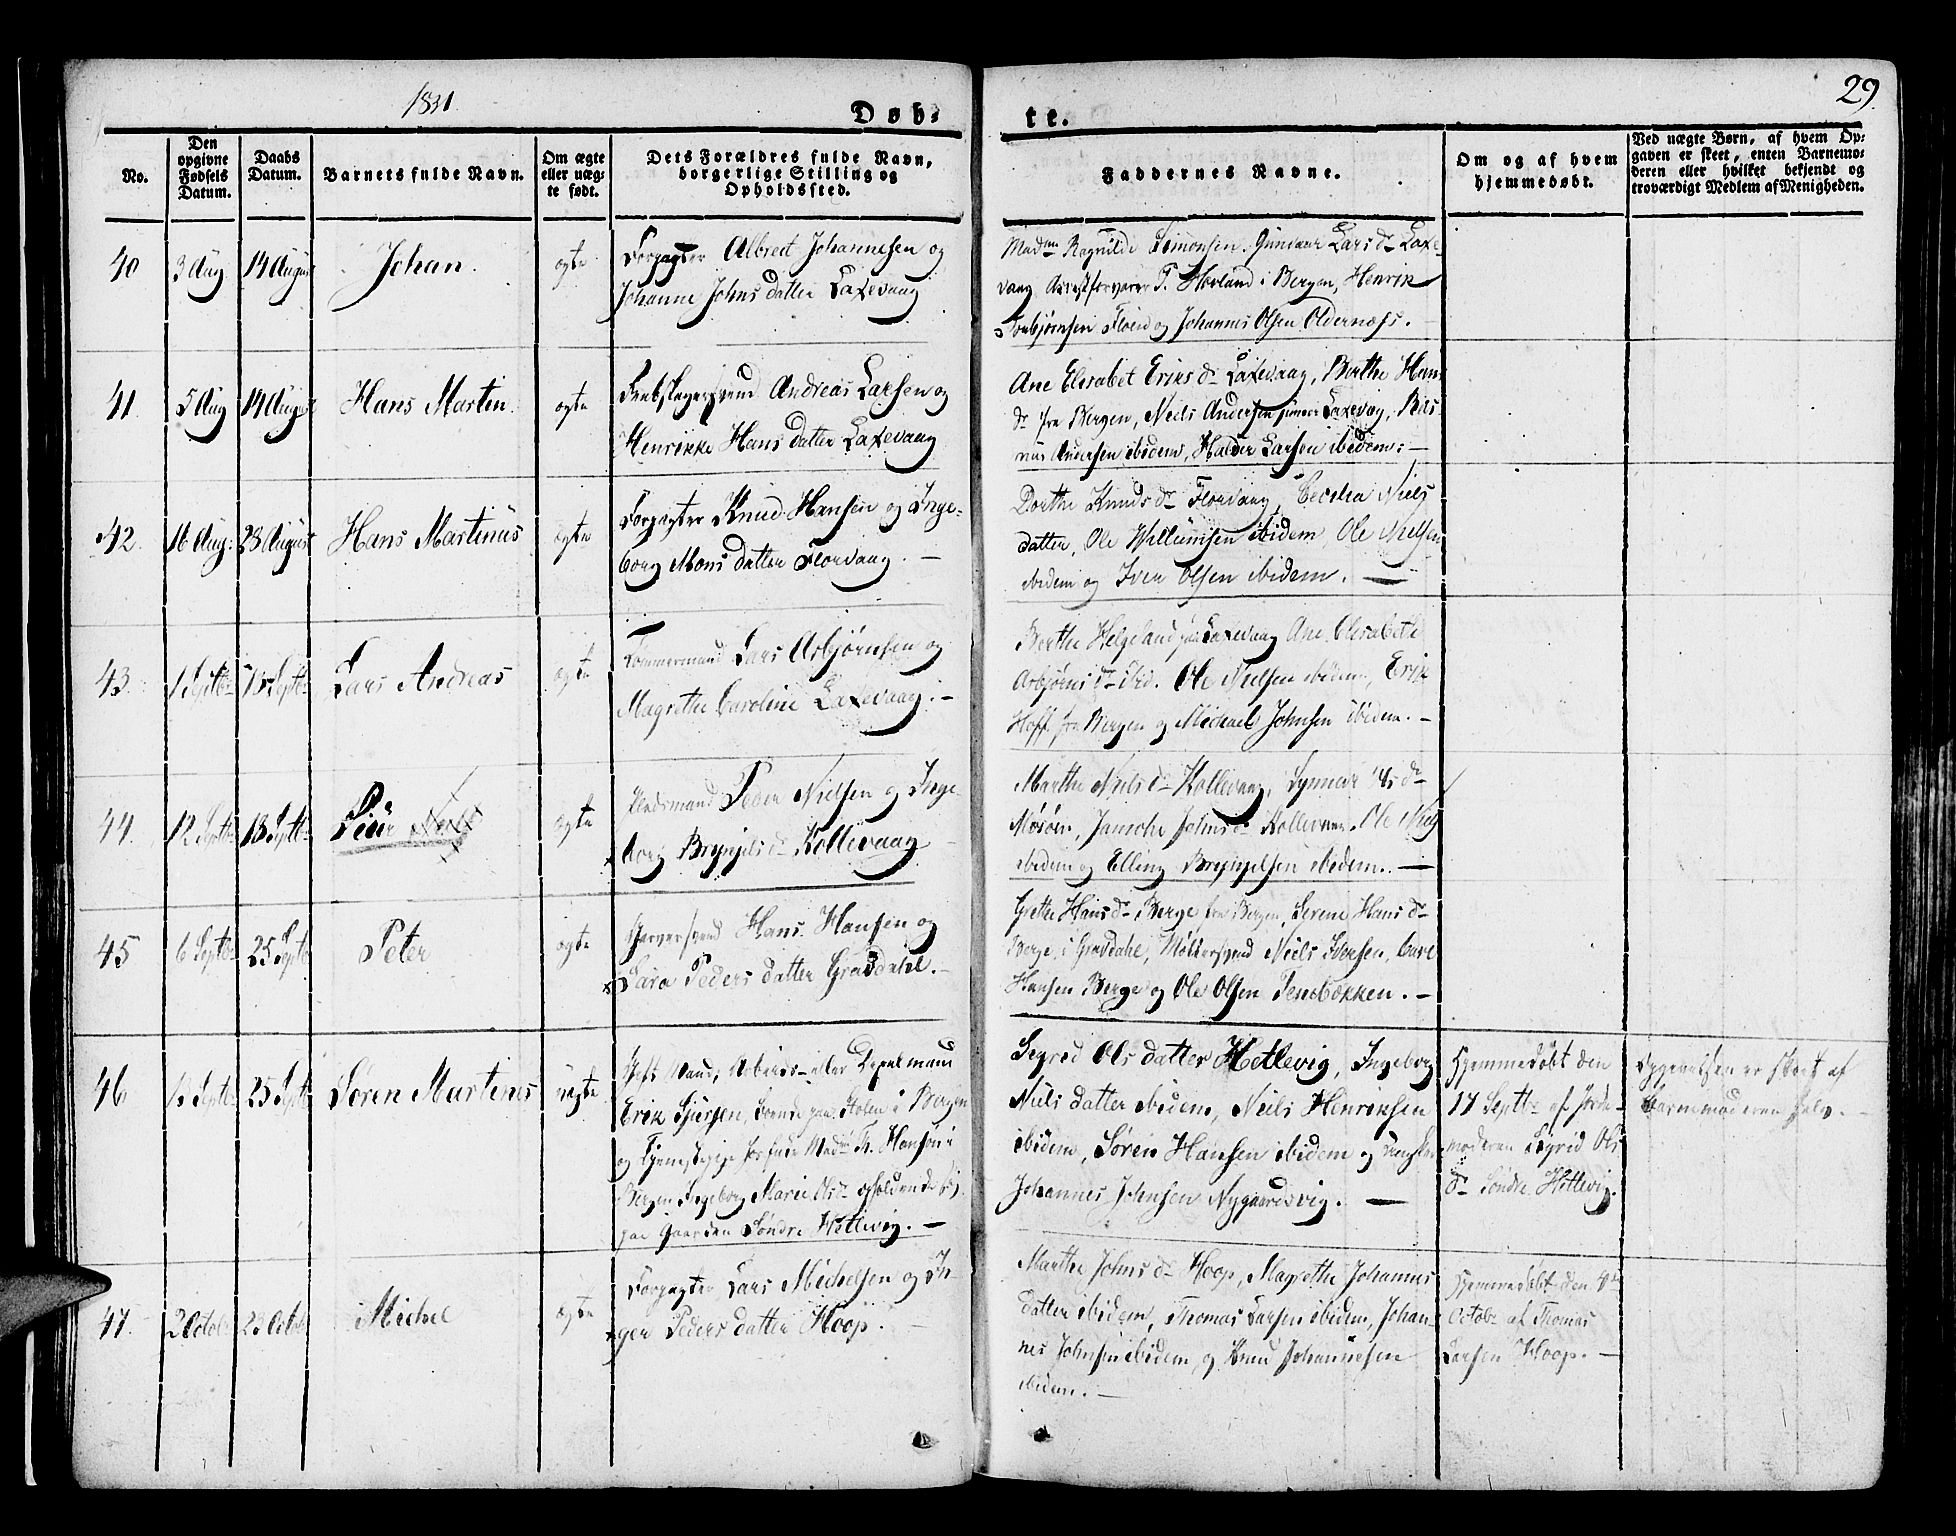 1831
29
Døb-
te.
No.
Den opgivne Fødsels Datum.
Daabs Datum.
Barnets fulde Navn.
Om ægte eller uæg-te født.
Dets Forældres fulde Navn, borgerlige Stilling og Opholdssted.
Faddernes Navne.
Om og af hvem hjemmedøbt.
Ved uægte Børn, af hvem Op-
gaven er skeet, enten Barnemo-
deren eller hvilket bekjendt og
troværdigt Medlem af Menigheden.
40
3 Aug
14 August
Johan.
ægte
Forpagter Albrect Johannesen og
Johanne Johnsdatter Laxevaag
Madme Ragnilde Simonsen, Gunnaar Larsdr Laxe-
vaag Arrestforvarer T. Hovland i Bergen, Henrik
Torbjørnsen Floen og Johannes Olsen Oldernæss.
41.
5 Aug
14 August
Hans Martin.
ægte
Andreas Larsen og
Henrikke Hansdatter Laxevaag
Ane Elisabet Eriks dr Laxevaag, Berthe Hans
dr fra Bergen, Neils Andersen junior Laxevaag, Ras-
mus Andersen ibidem, Haldor Larsen ibidem.—
42.
16 Aug:
28 August
Hans Martinus
ægte
Forpagter Knud Hansen og Inge-
borg Mons datter Florvaag. —
Dorthe Knuds dr Florvaag, Cecilia Niels
datter, Ole Willumsen ibidem, Ole Nielsen
ibidem og Iver Olsen ibidem. —
43.
1 Septbr
Septbr
Lars Andreas
ægte
Tømmermand Lars Asbjørnsen og
Magrethe Caroline Laxevaag. —
Berthe Helgeland fra Laxevaag Ane Elisabeth
Asbjørns dr ibid. Ole Nielsen ibidem, Erik
Hoff fra Bergen og Michael Johnsen ibidem. —
44.
12 Septbr
18 Septbr
Peder
ægte
Pladsmand Peder Nielsen og Inge-
borg Brynjels dr Kollevaag
Marthe Niels dr Kollevaag, Synneve dr
Johns dr Kollevaag, Ole Niels
ibidem og Elling Brynjelsen ibidem. —
45
6 Septbr
25 Septbr
Peter
ægte
Garversvend Hans Hansen og
Sara Peders datter Gravdahl. —
Grethe Hans dr Berge fra Bergen, Serene Hans dr
Berge i Gravdahl, Møllersvend Niels Iversen,
Hansen Berge og Ole Olsen —
46
Septbr
25 Septbr
Søren Martinus
uægte
Erik Sjursen, i Bergen
og Tjenestepige hos Madme Fr. Hansen i
Bergen Ingeborg Marie Olsdr opholdende sig
paa Gaarden Søndre Hetlevig. —
Segred Ols datter Hetlevig, Ingeborg
Niels datter ibidem, Neils Henriksen
ibidem, Søren Hansen ibidem og
Johannes Johnsen Nygaardsvig. —
Hjemmedøbt den
17 Septbr af Jorde-
moderen Sigrid Ols
dr Søndre Hetlevig.
Opgivelsen er skeet af
Barnemoderen selv. —
47.
2 Octob
23 Octob
Michel
ægte
Forpagter Lars Michelsen og In-
ger Peders datter Hoop. —
Marthe Johns dr Hoop, Magrethe Johannes
datter ibidem, Thomas Larsen ibidem, Johan-
nes Johnsen ibidem, og Knud Johannesen
ibidem. —
Hjemmedøbt den 4de
Octobr af Thomas
Larsen Hoop. —